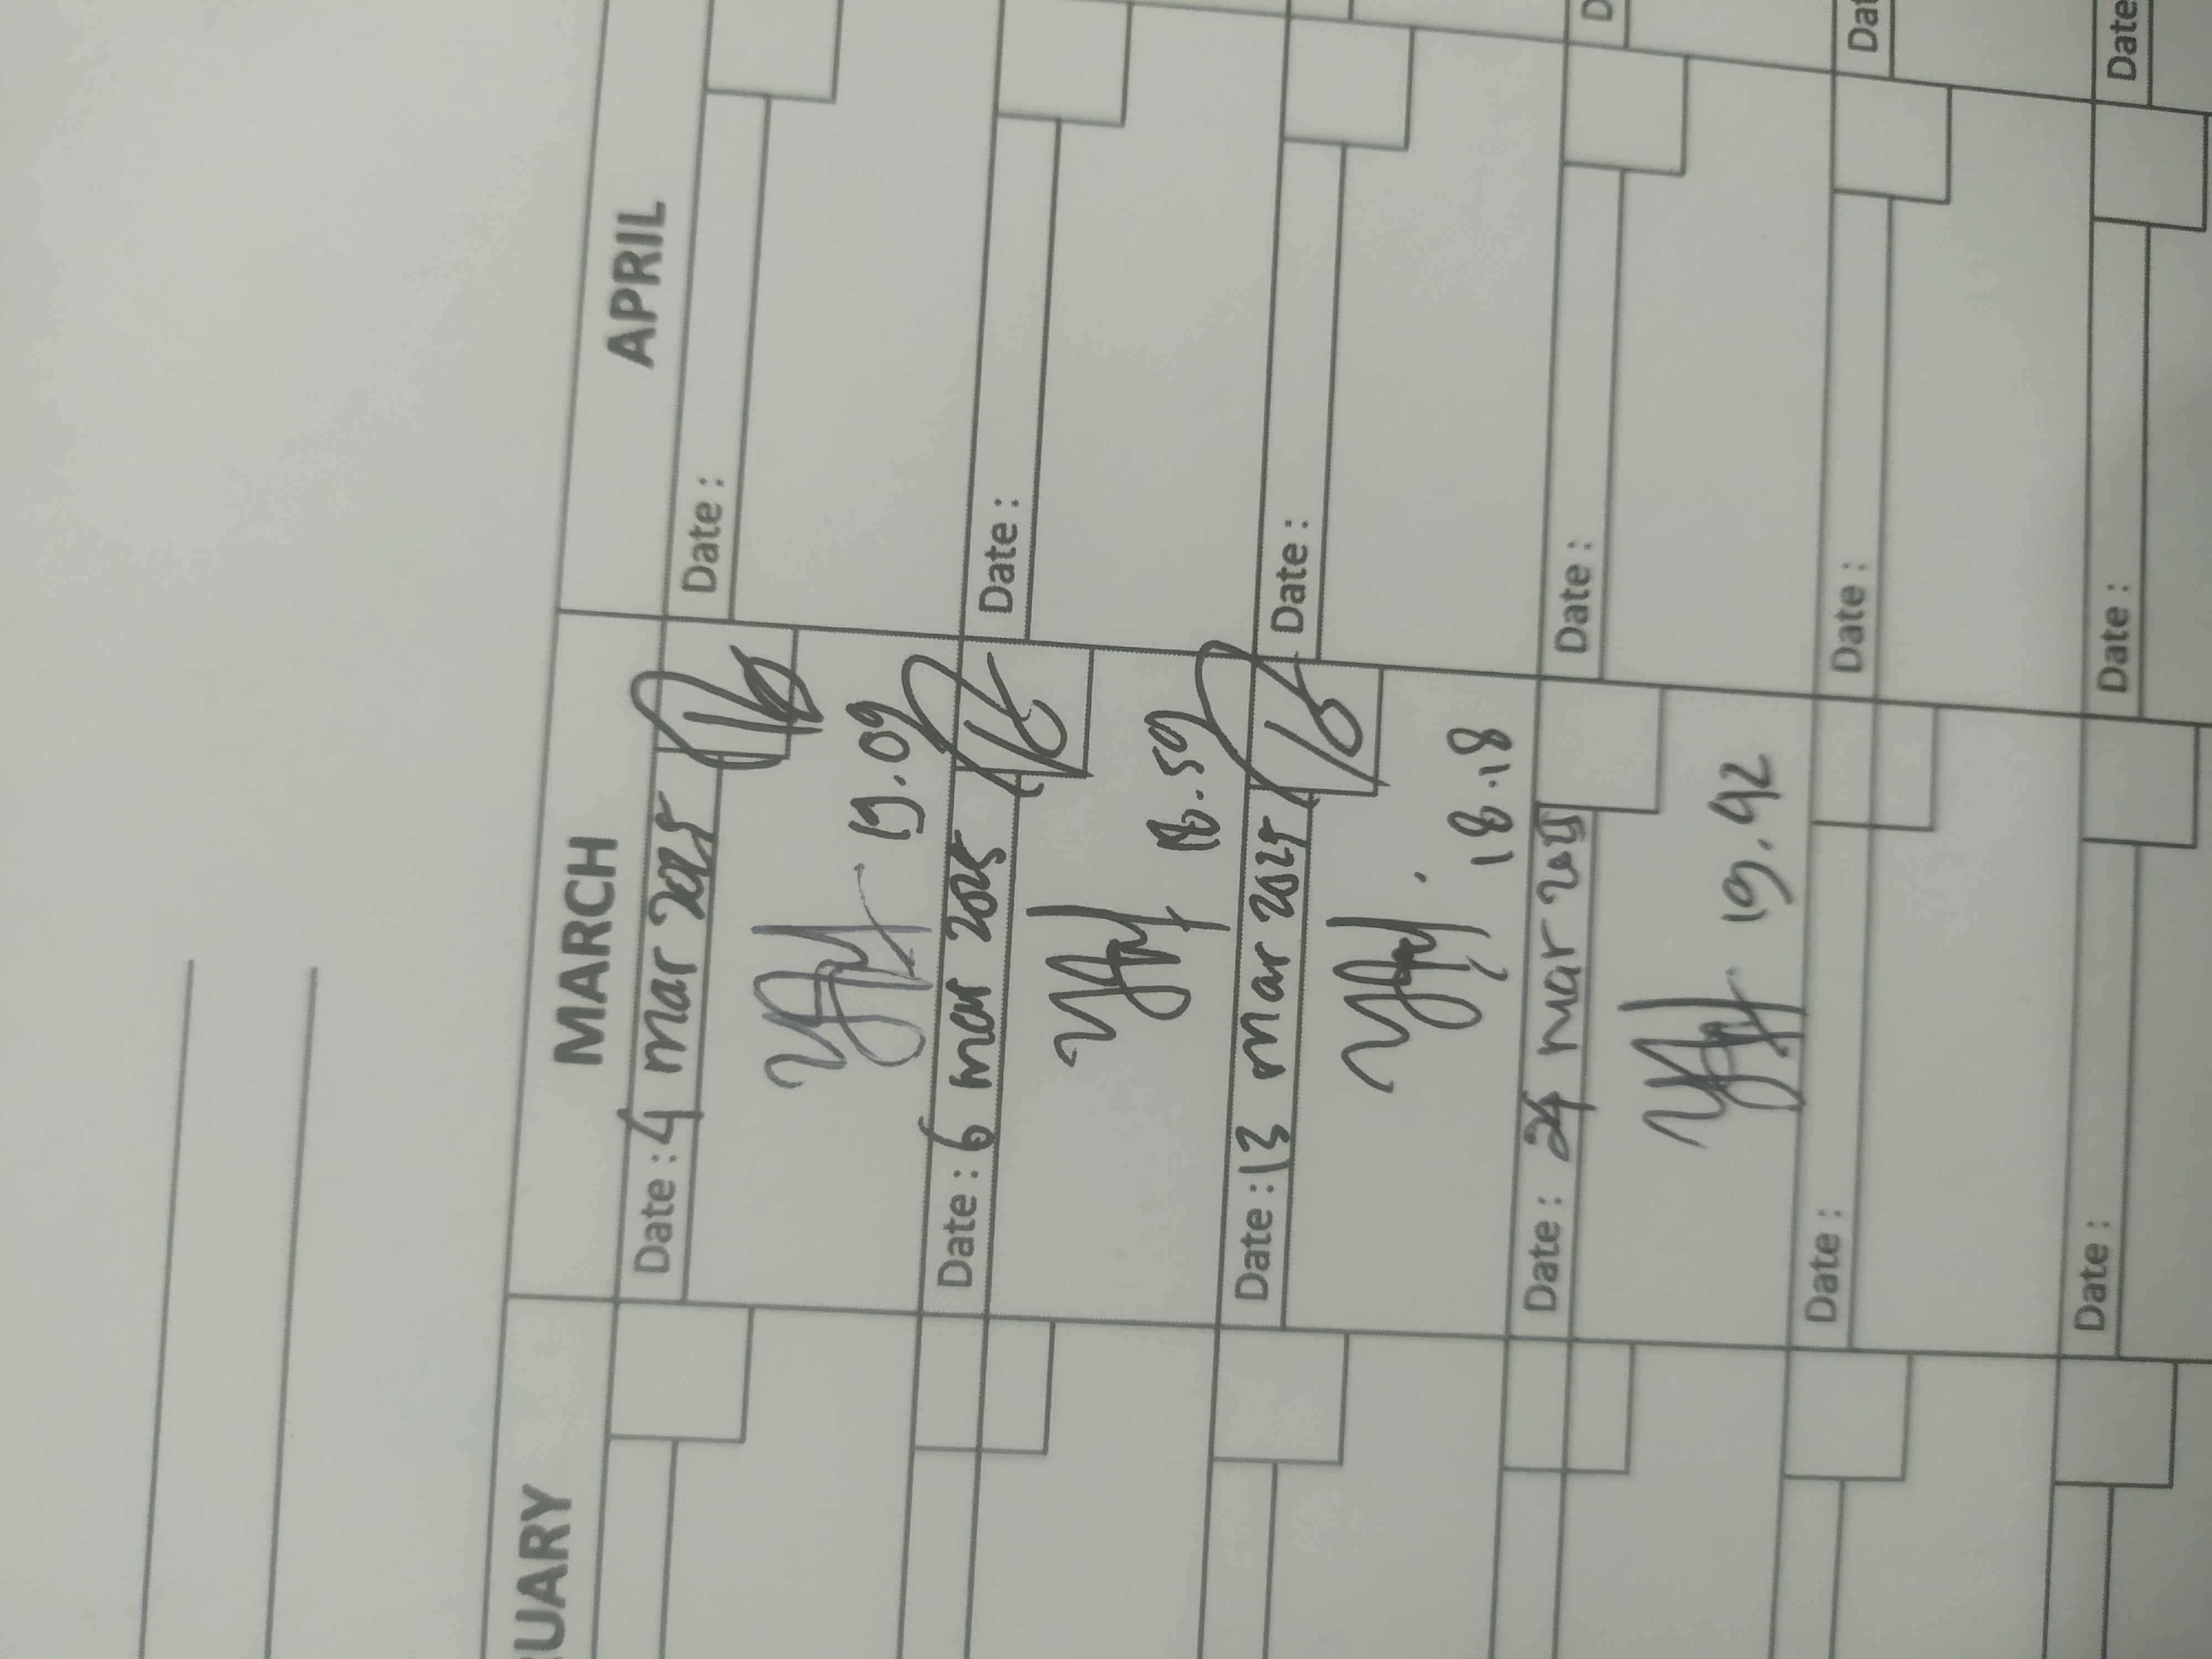 RUARY
MARCH
APRIL
Date : 4 mar 2025
19.09
Date :
Date : 6 mar 2025
18.59
Date :
Date : 13 mar 2025
18.18
Date :
Date : 24 mar 2025
19.42
Date :
Date :
Date :
Date :
Date :
Dat
Date